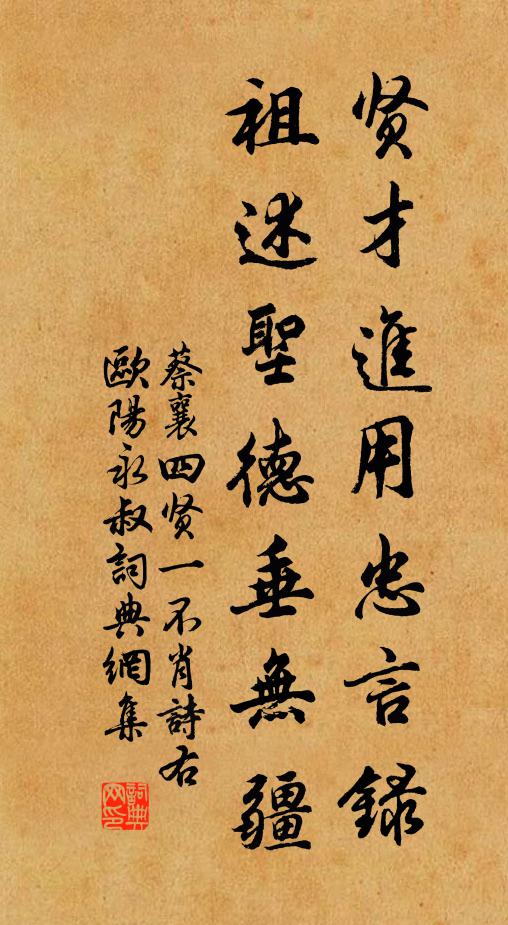 贤才進用忠言録
祖述聖德垂無疆
蔡襄四贤一不肖詩右
歐陽永叔詞典網集
詞典网印